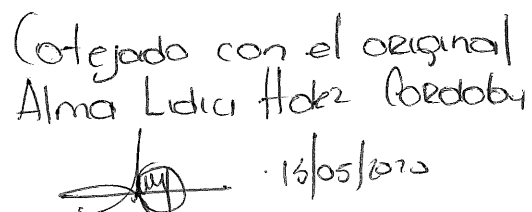 Cotejado con el original
Alma Lidia Hdez Cordoby
15/05/2020